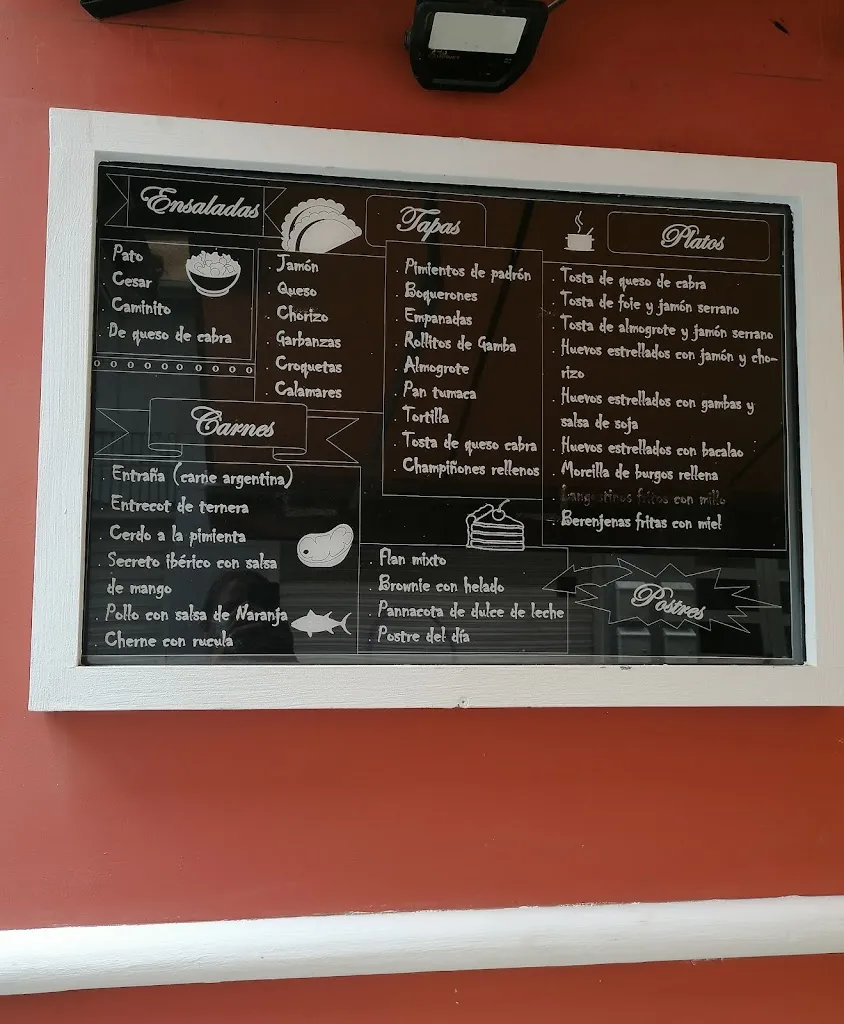 Ensaladas
. Pato
. Cesar
. Caminito
. De queso de cabra
Tapas
. Jamón
. Queso
. Chorizo
. Garbanzas
. Croquetas
. Calamares
. Pimientos de padrón
. Boquerones
. Empanadas
. Rollitos de Gamba
. Almogrote
. Pan tumaca
. Tortilla
. Tosta de queso cabra
. Champiñones rellenos
Platos
. Tosta de queso de cabra
. Tosta de foie y jamón serrano
. Tosta de almogrote y jamón serrano
. Huevos estrellados con jamón y cho-
rizo
. Huevos estrellados con gambas y
salsa de soja
. Huevos estrellados con bacalao
. Morcilla de burgos rellena
. Langostinos fritos con millo
. Berenjenas fritas con miel
Carnes
. Entraña (carne argentina)
. Entrecot de ternera
. Cerdo a la pimienta
. Secreto ibérico con salsa
de mango
. Pollo con salsa de Naranja
. Cherne con rucula
Postres
. Flan mixto
. Brownie con helado
. Pannacota de dulce de leche
. Postre del día